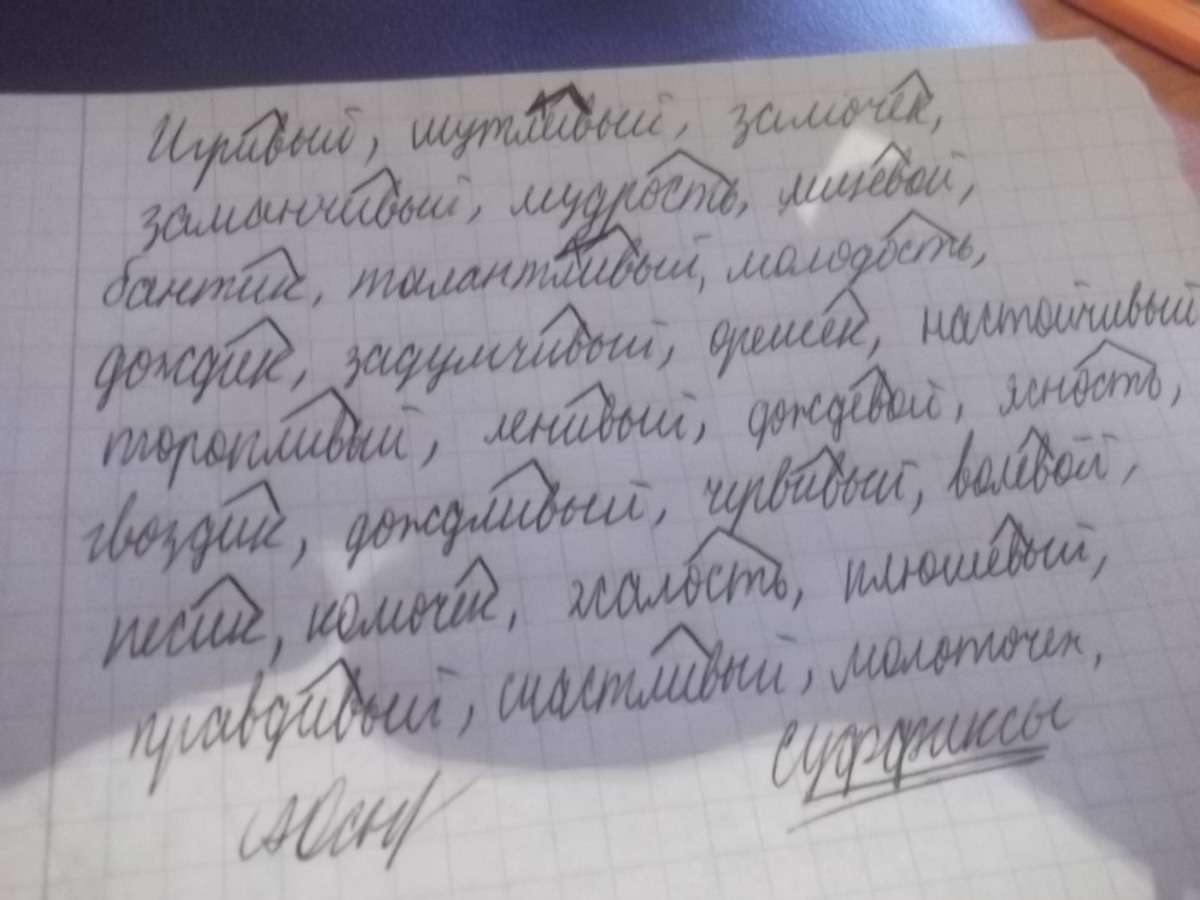 Игривый, шутливый, замочек,
заманчивый, мудрость, лицевой,
бантик, талантливый, молодость,
дождик, задумчивый, орешек, настойчивый
торопливый, ленивый, дождевой, ясность,
гвоздик, дождливый, червивый, волевой,
песик, комочек, жалость, плюшевый,
правдивый, счастливый, молоточек,
суффиксы